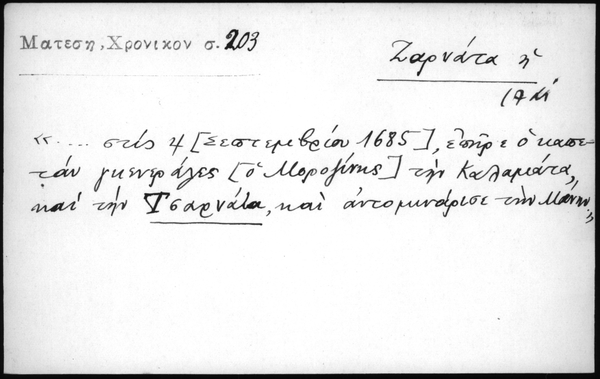 Ματεση, Χρονικον σ. 203
Ζαρνάτα ἡ
«.... στὶς 4 [Σεπτεμβρίου 1685], ἐπῆρε ὁ καπε-
τάν γκενεράλες [ὁ Μοροζίνης] τὴν Καλαμάτα,
καὶ τὴν Τσαρνάτα, καὶ ἀντομινάρισε τὴν Μάνην»